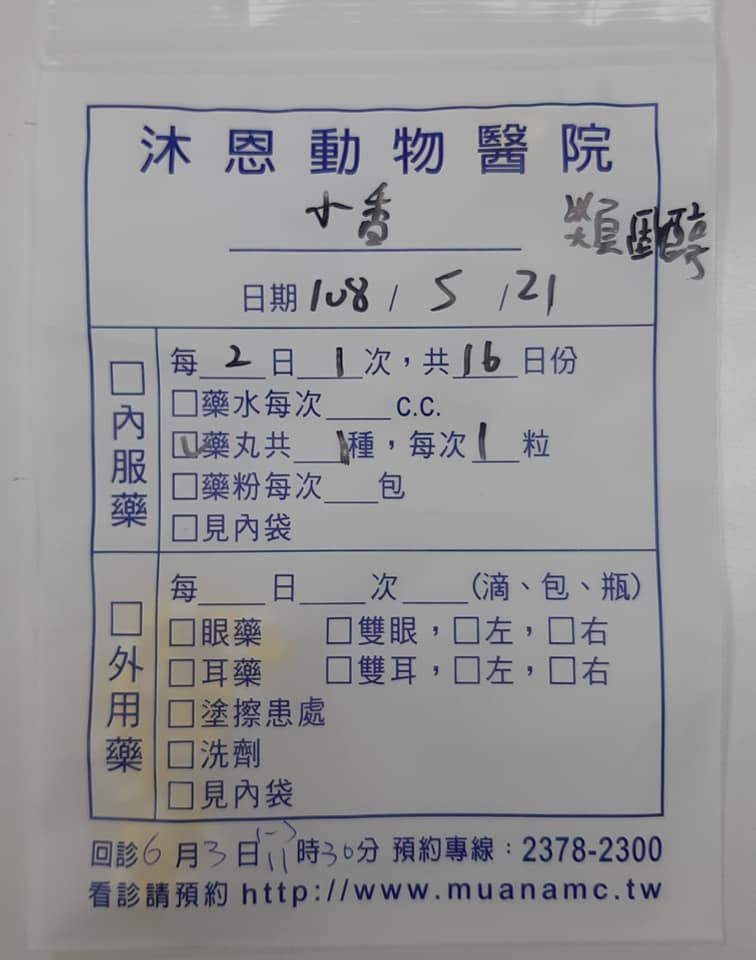 沐恩動物醫院
小香 類固醇
日期 108 / 5 / 21
□內服藥
每 2 日 1 次，共 16 日份
□藥水每次____c.c.
☑藥丸共 1 種，每次 1 粒
□藥粉每次___包
□見內袋
□外用藥
每____日____次____(滴、包、瓶)
□眼藥 □雙眼，□左，□右
□耳藥 □雙耳，□左，□右
□塗擦患處
□洗劑
□見內袋
回診 6 月 3 日(一) 11 時 30 分 預約專線：2378-2300
看診請預約 http://www.muanamc.tw